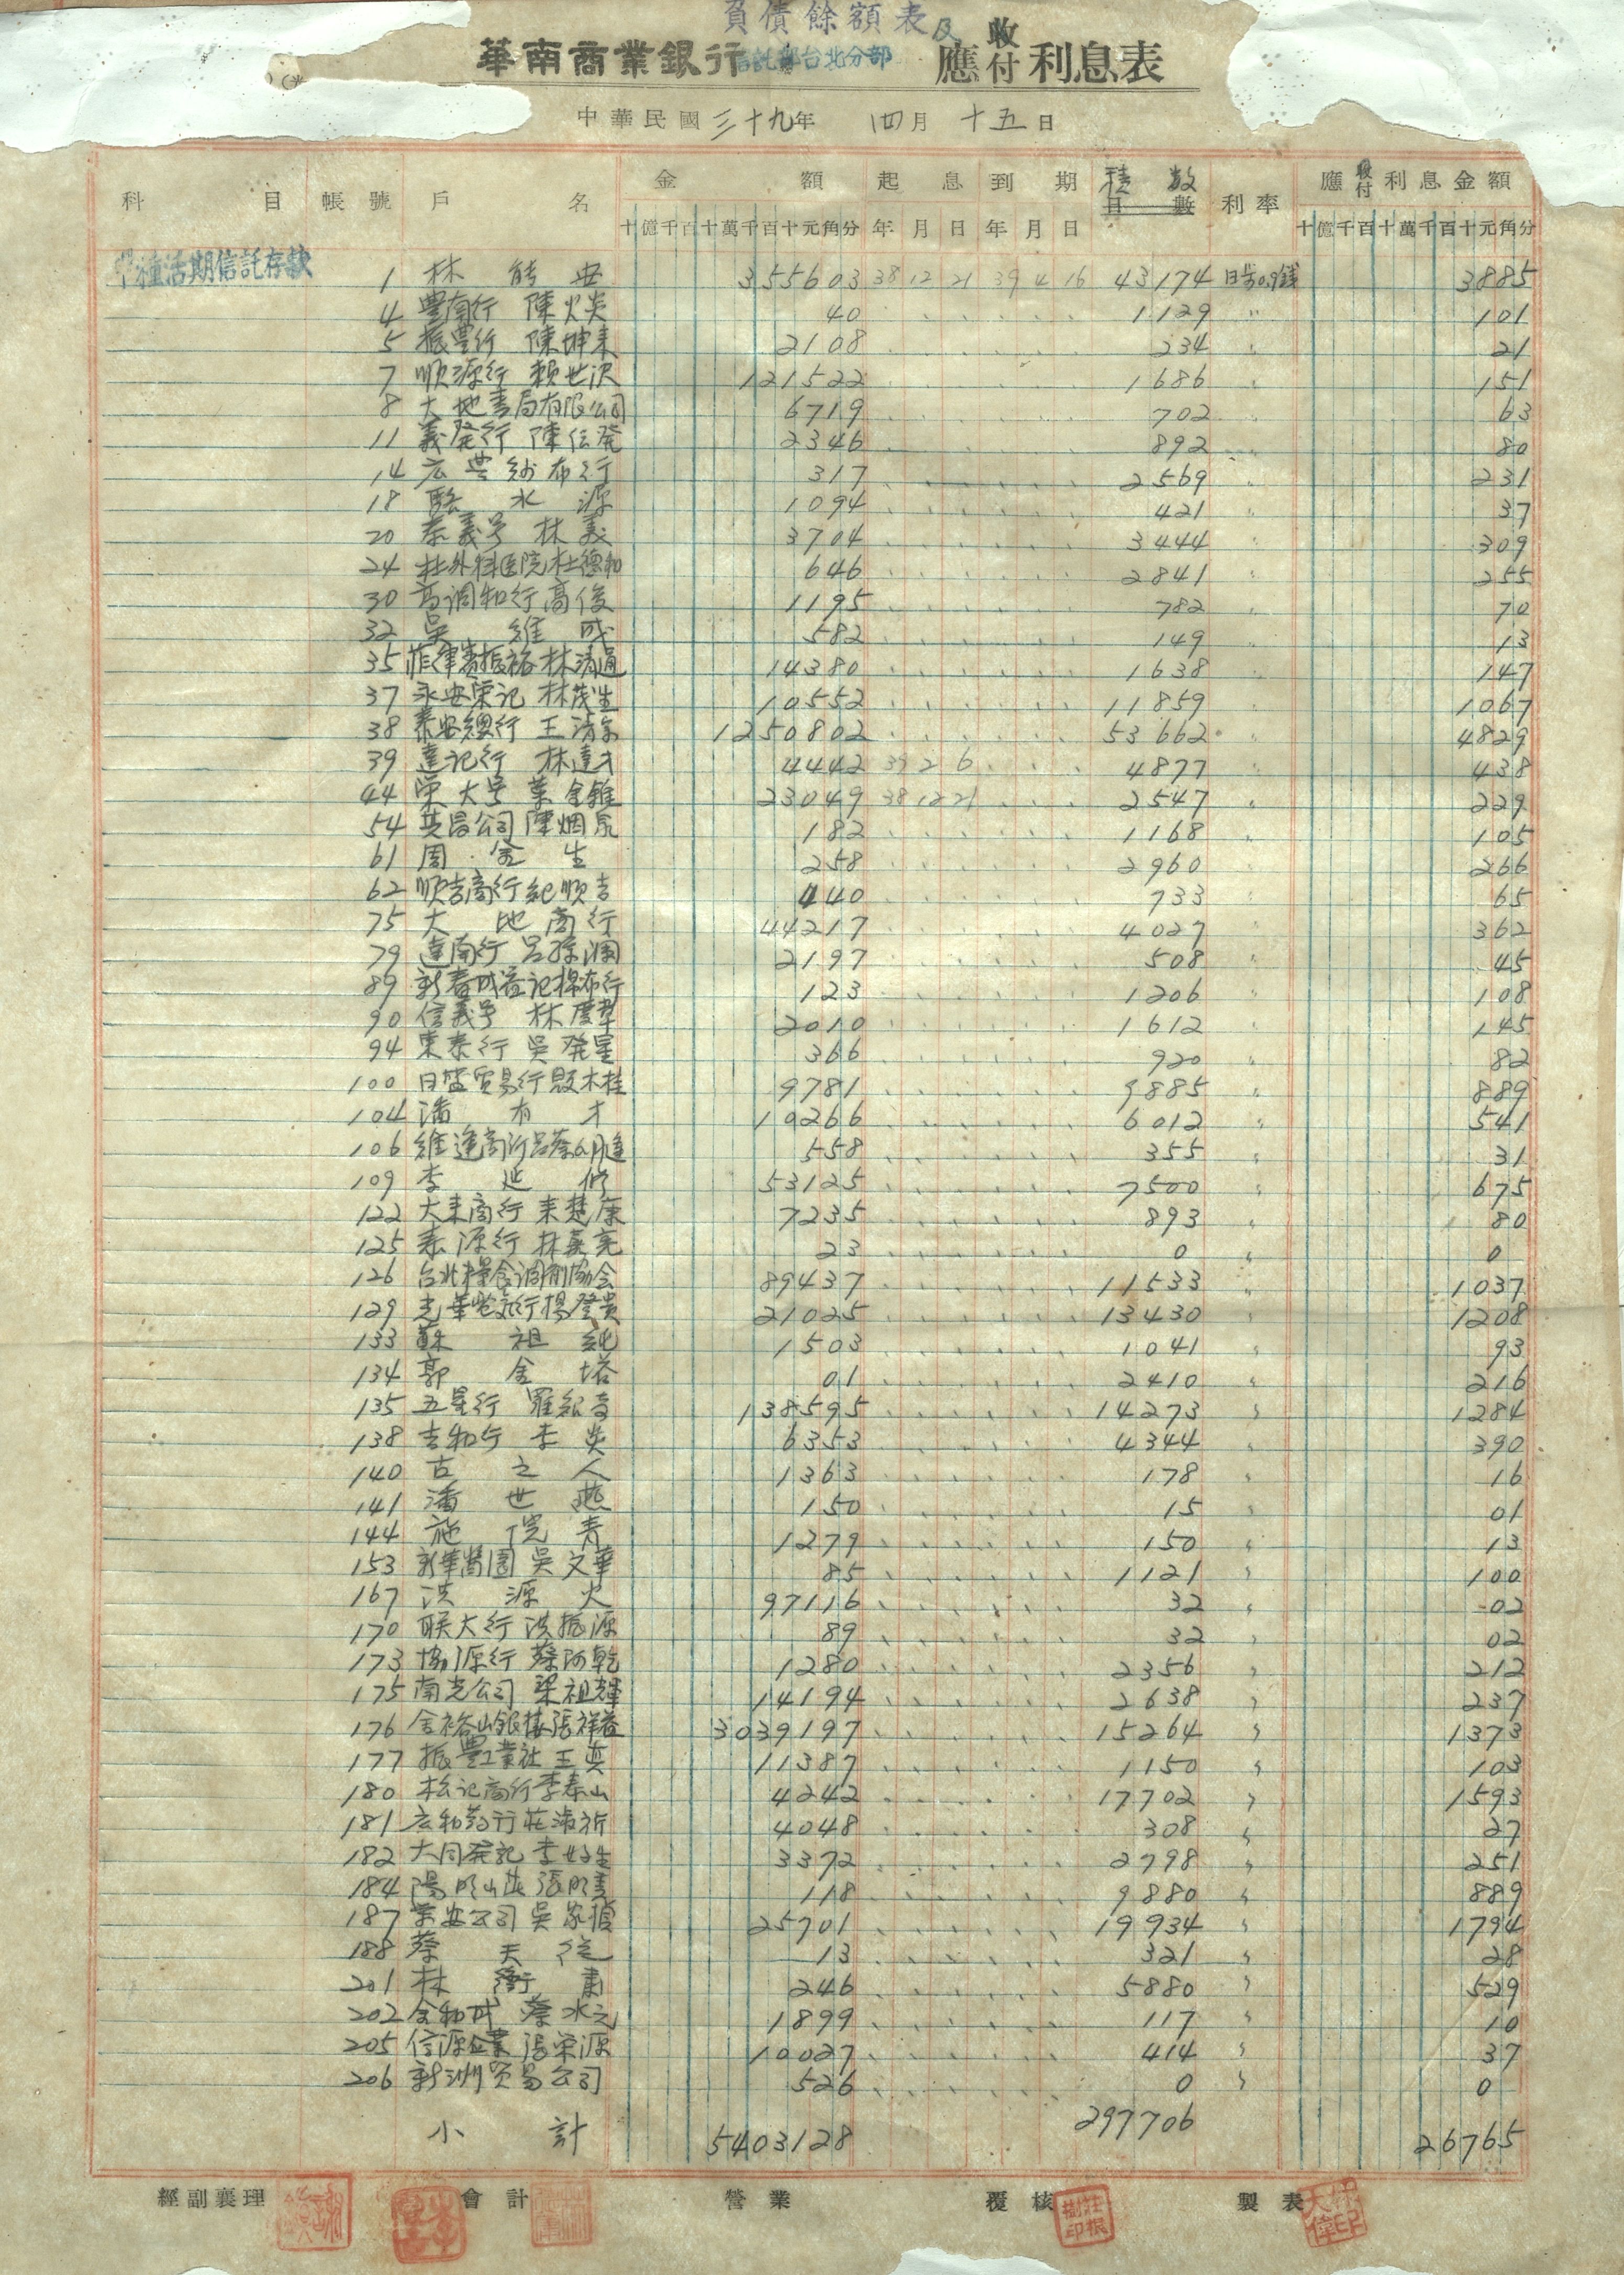 負債餘額表及
華南商業銀行信託部台北分部 應收付利息表
中華民國三十九年 四月 十五日
科目 帳號 戶名 金額 起息 到期 積數 日數 利率 應收付利息金額
十億千百十萬千百十元角分 年月日年月日 十億千百十萬千百十元角分
甲種活期信託存款
1 林能安 355603 38 12 21 39 4 16 43174 日步0.9錢 3885
4 豐南行 陳火炎 40 1129 〃 101
5 振豐行 陳坤來 2108 234 〃 21
7 順源行 賴世沢 121522 1686 〃 151
8 大地書局有限公司 6719 702 〃 63
11 義発行 陳伝発 2346 892 〃 80
14 宏興紗布行 317 2569 〃 231
18 駱水源 1094 421 〃 37
20 泰義号 林義 3704 3444 〃 309
24 杜外科医院杜德和 646 2841 〃 255
30 高调和行高俊 1195 782 〃 70
32 吳維成 582 149 〃 13
35 菲律賓振裕 林清通 14380 1638 〃 147
37 永安榮記 林茂生 10552 11859 〃 1067
38 泰安總行 王清 1250802 53662 〃 4829
39 達記行 林達才 4442 39 2 6 4877 〃 438
44 榮大号 葉金錐 23049 38 12 21 2547 〃 229
54 英昌公司 陳烟泉 182 1168 〃 105
61 周金生 258 2960 〃 266
62 順吉商行 紀順吉 440 733 〃 65
75 大地商行 44217 4027 〃 362
79 達南行 呂孫 2197 508 〃 45
89 新春成益記棉布行 123 1206 〃 108
90 信義号 林慶 2010 1612 〃 145
94 東泰行 吳発星 366 920 〃 82
100 日盛貿易行 木桂 9781 9885 〃 889
104 潘有才 19266 6012 〃 541
106 維達商行呂蔡 558 355 〃 31
109 李延修 53125 7500 〃 675
122 大來商行 來楚康 7235 893 〃 80
125 泰源行 林嘉亮 23 0 〃 0
126 台北糧食調劑協会 89437 11533 〃 1037
129 光華 行楊登貴 21025 13430 〃 1208
133 蘇祖純 1503 1041 〃 93
134 郭金塔 01 2410 〃 216
135 五星行 羅紹奇 138595 14273 〃 1284
138 吉和行 李炎 6353 4344 〃 390
140 古之人 1363 178 〃 16
141 潘世燕 150 15 01
144 施倪青 1279 150 〃 13
153 新華 園 吳文華 85 1121 〃 100
167 洪源火 97116 32 〃 02
170 联大行 洪振源 89 32 〃 02
173 協源行 蔡阿乾 1280 2356 〃 212
175 南光公司 梁祖輝 14194 2638 〃 237
176 金裕山銀樓張祥益 3039197 15264 〃 1373
177 振豐工業社 王英 11387 1150 〃 103
180 松記商行李泰山 4242 17702 〃 1593
181 宏和葯行莊 4048 308 〃 27
182 大同発記 李 生 3372 2798 〃 251
184 陽明山莊 張明 118 9880 〃 889
187 榮安公司 吳家 25701 19934 〃 1794
188 蔡天從 13 321 〃 28
201 林衡肅 246 5880 〃 529
202 金和成 蔡水元 1899 117 〃 10
205 信源企業 張榮源 10027 414 〃 37
206 新洲貿易公司 526 0 〃 0
小計 5403128 297706 26765
經副襄理 會計 營業 覆核 製表